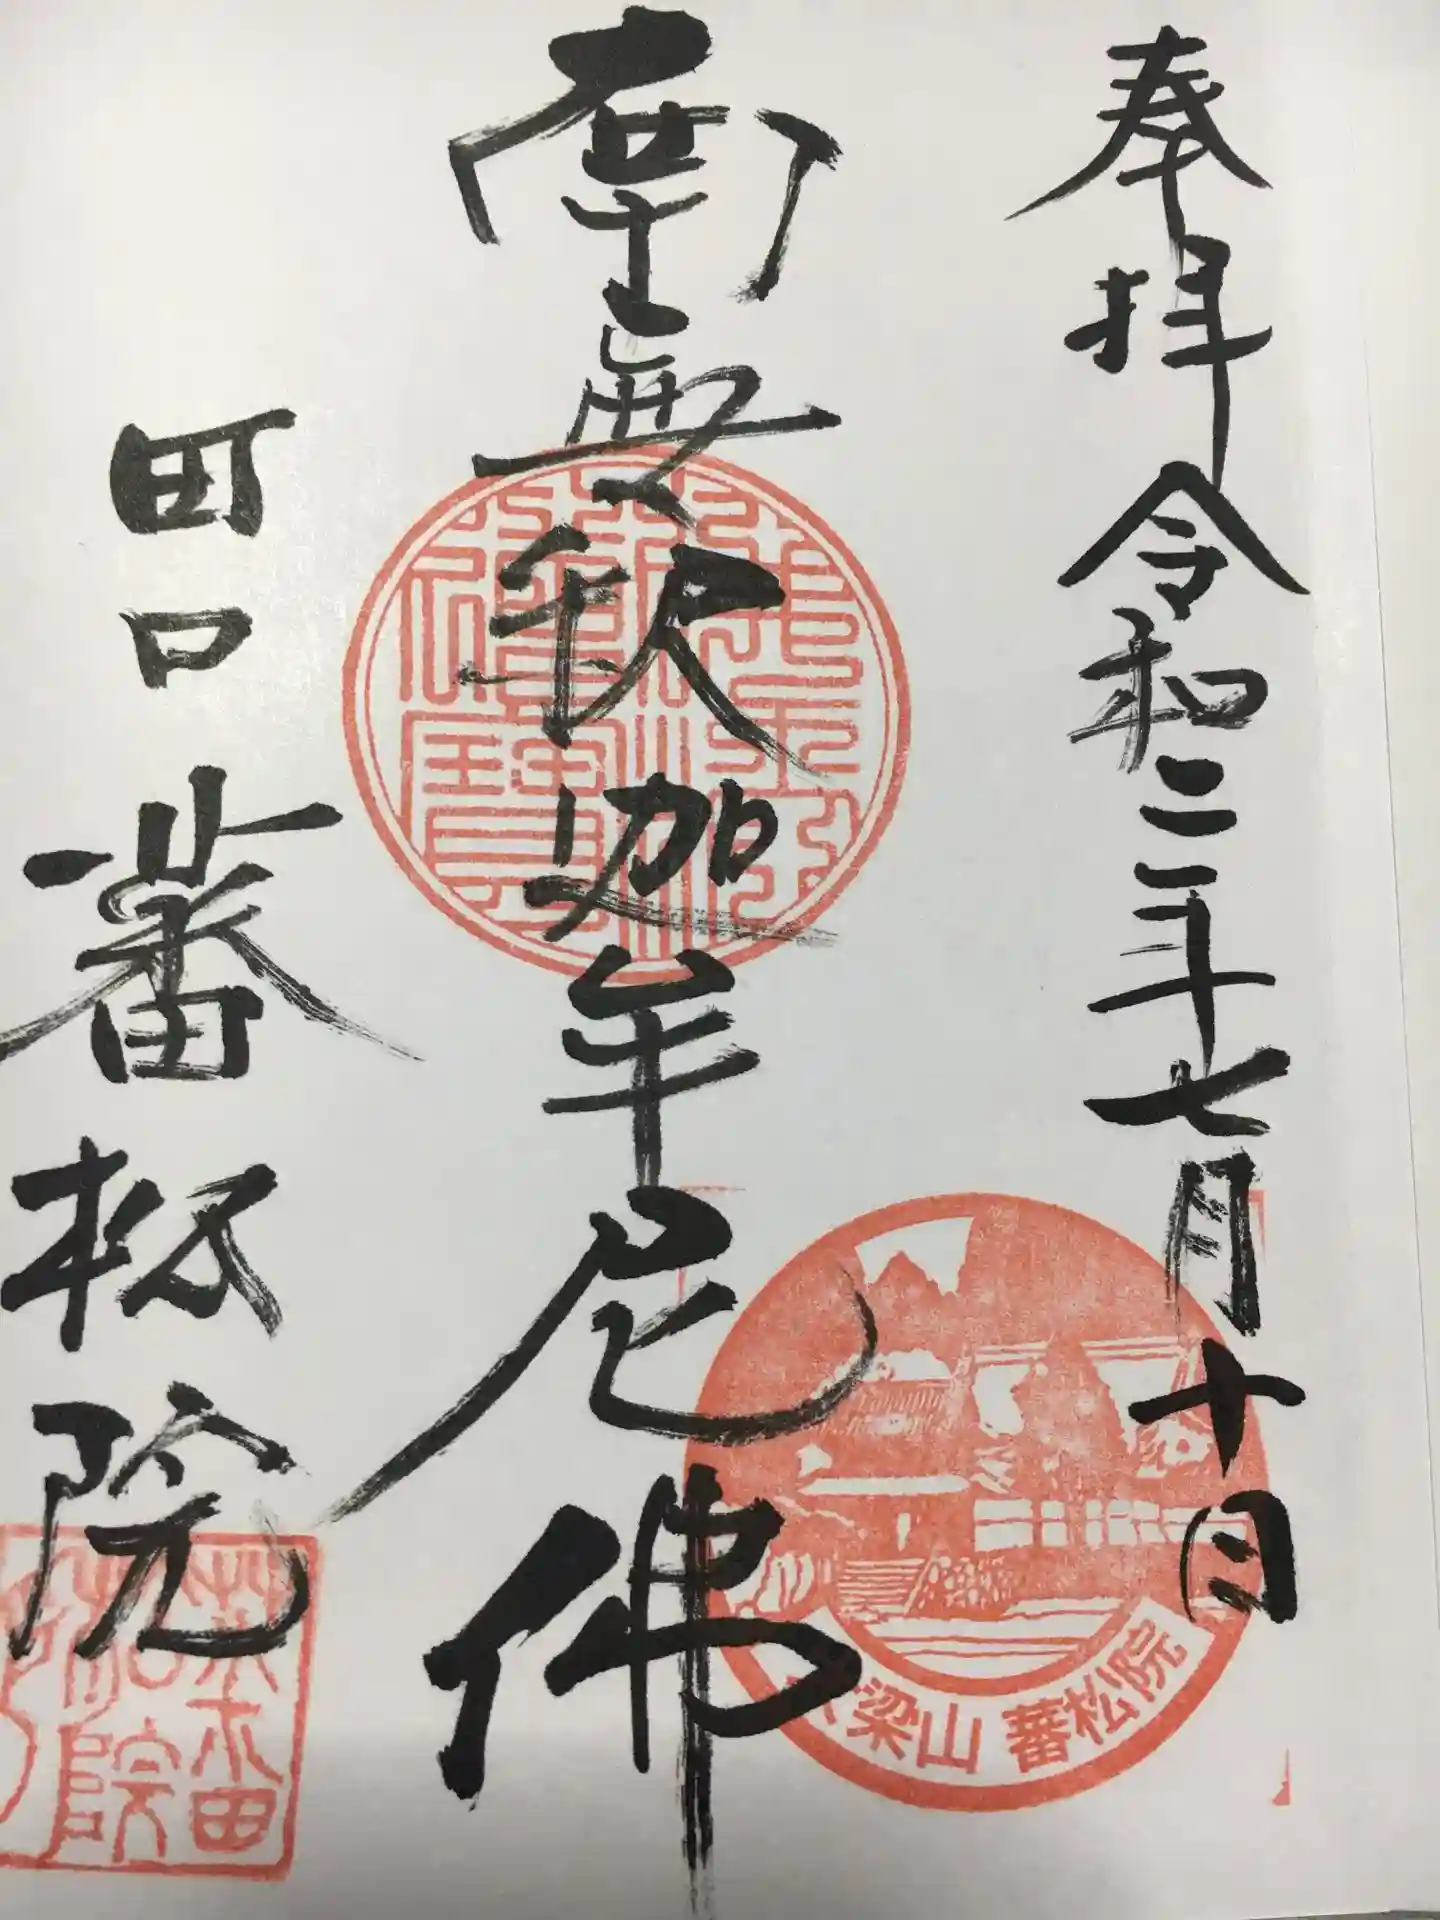 奉拝 令和二年七月十日
南無釈迦牟尼佛
町口 蕃松院
梁山 蕃松院